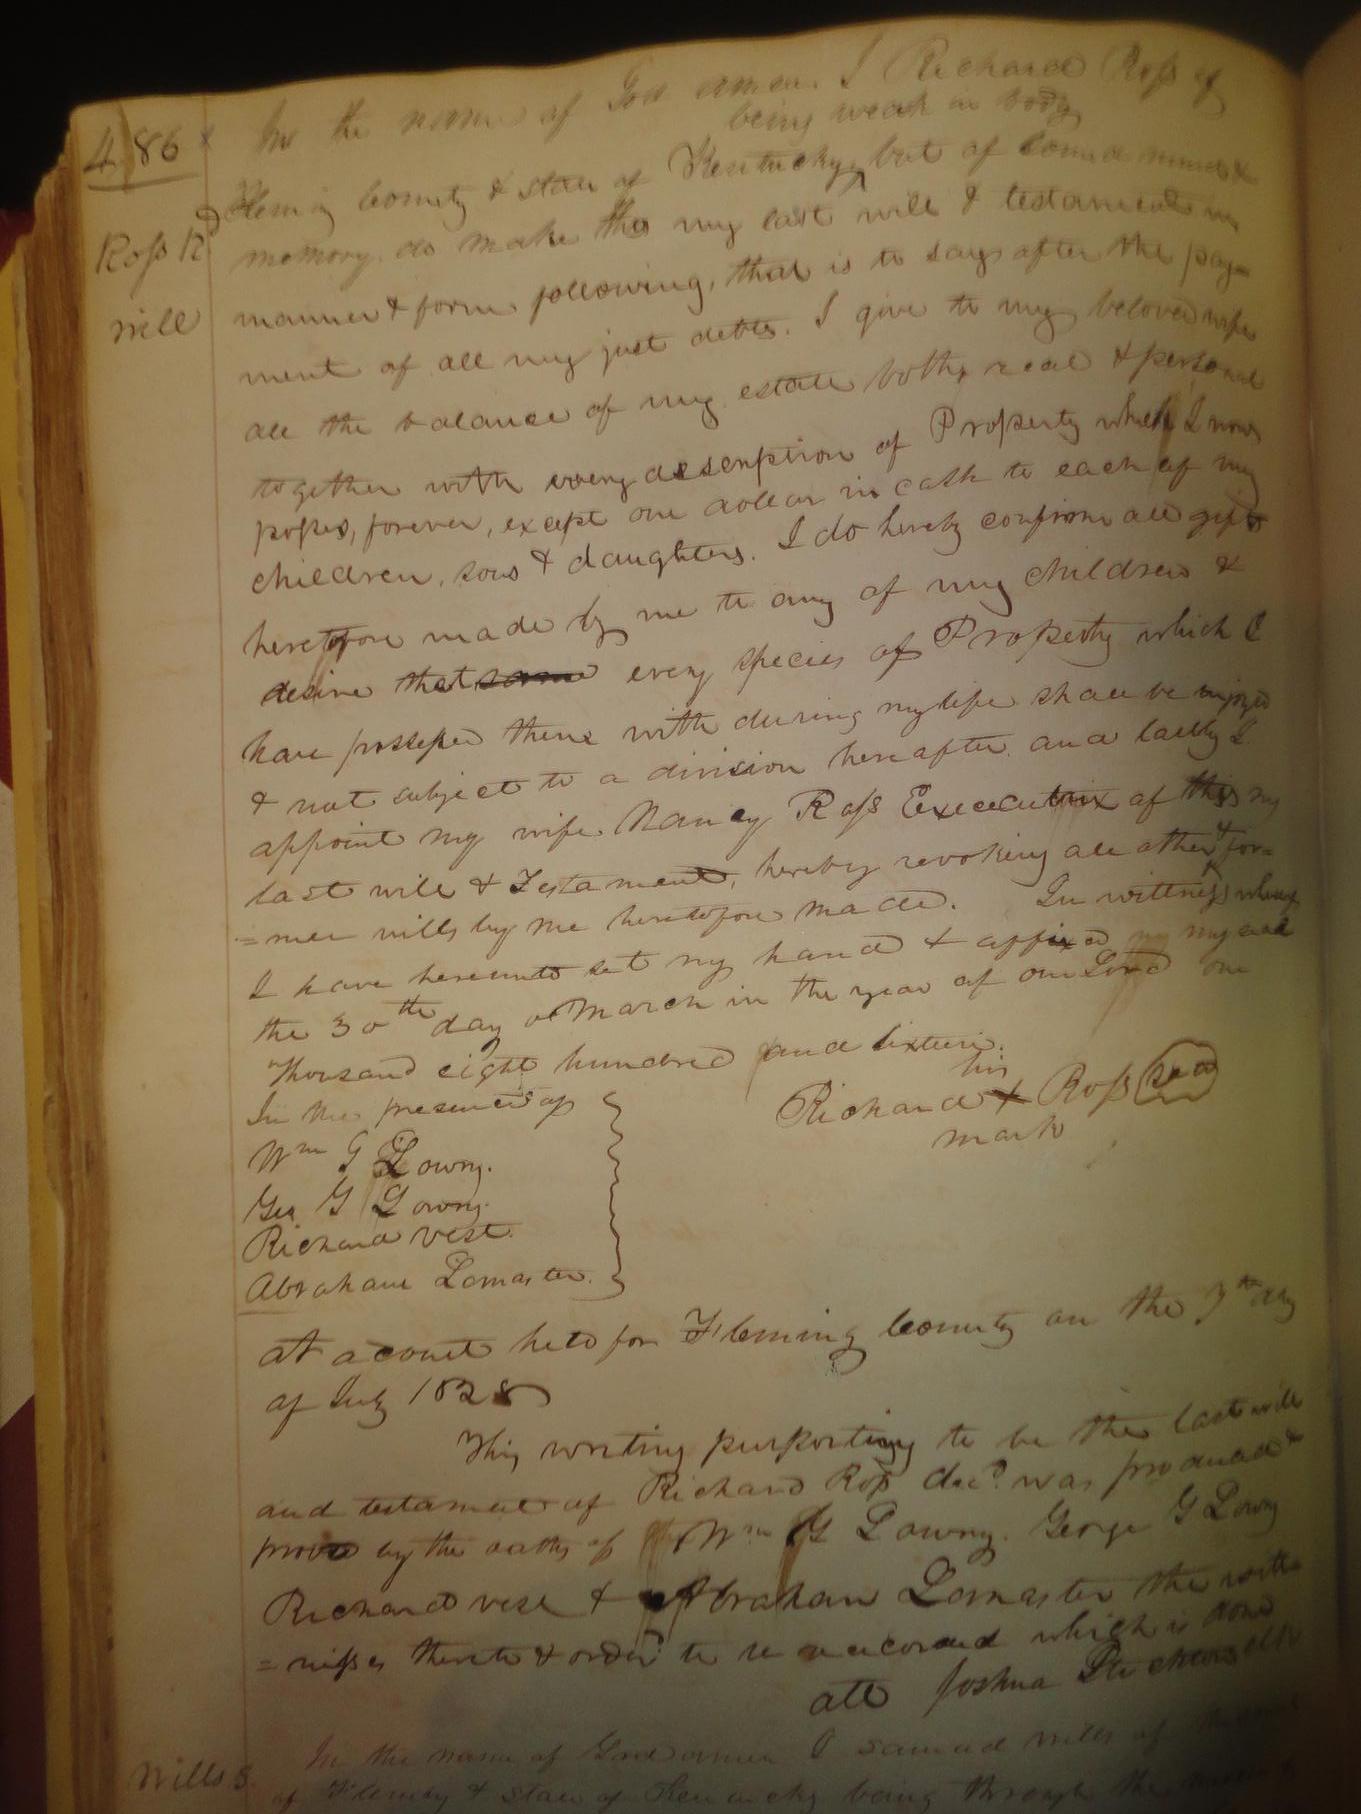 In the name of God amen. I Richard Ross of
being weak in body
486
Fleming County & state of Kentucky, but of sound mind &
Ross Rd
memory do make this my last will & testament in
will
manner & form following, that is to say after the pay=
ment of all my just debts. I give to my beloved wife
all the balance of my estate both real & personal
together with every description of Property which I now
posses, forever, except one dollar in cash to each of my
children, sons & daughters. I do hereby confirm all gifts
heretofore made by me to any of my children &
desire that same every species of Property which I
have possessed them with during my life shall be enjoyed
& not subject to a division hereafter and lastly I
appoint my wife Nancy Ross Executrix of this my
last will & Testament, hereby revoking all other & for=
=mer wills by me heretofore made. In wittness whereof
I have hereunto set my hand & affixed my seal
the 30th day of March in the year of our Lord one
Thousand eight hundred and sixteen.
his
In the presence of
Richard X Ross seal
mark
Wm G Lowry.
Geo G Lowry.
Richard Vest.
Abraham Lemaster.
At a court held for Fleming County on the 7th day
of July 1828
This writing purporting to be the last will
and testament of Richard Ross decd. was produced &
proved by the oaths of Wm G Lowry. George G Lowry
Richard vest & Abraham Lemaster the witt=
=nesses thereto & orderd to be recorded which is done
att Joshua Stockton clk
Wills S. In the name of God amen I Samuel Wills of
of Fleming & state of Kentucky being through the